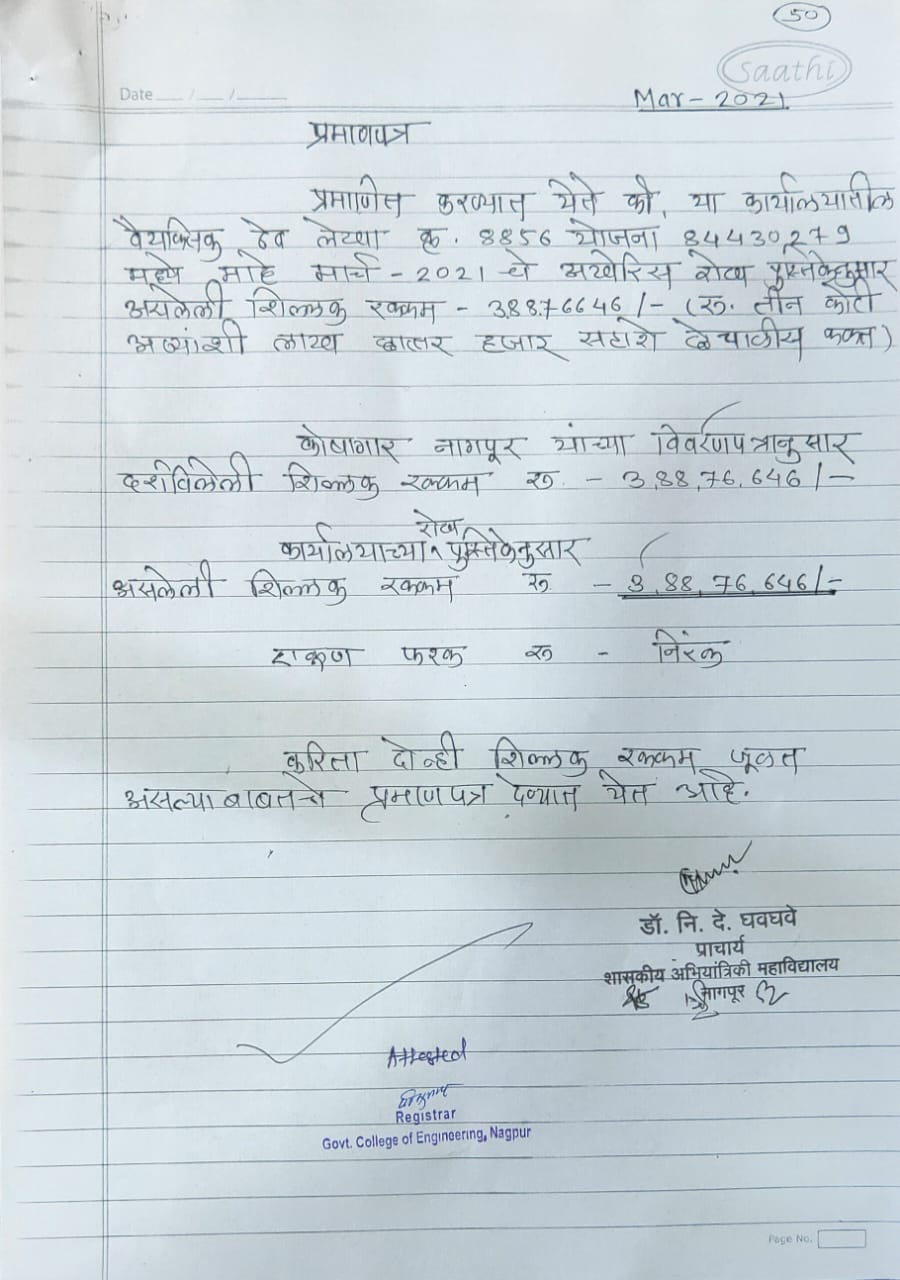 50
saathi
Date ___/___/___
Mar - 2021
प्रमाणपत्र
प्रमाणित करण्यात येते की, या कार्यालयातील
वैयक्तिक ठेव लेख्या क्र. 8856 योजना 84430279
मध्ये माहे मार्च - 2021 चे अखेरिस रोख पुस्तिकेनुसार
असलेली शिल्लक रक्कम - 3,88,76646/- (रू. तीन कोटी
अठ्यांशी लाख हजार सहाशे फक्त)
कोषागार नागपूर यांच्या विवरणपत्रानुसार
दर्शविलेली शिल्लक रक्कम रू. - 3,88,76,646/-
रोख
कार्यालयाच्या ^ पुस्तिकेनुसार
असलेली शिल्लक रक्कम रू. - 3,88,76,646/-
एकूण फरक रू - निरंक
करिता दोन्ही शिल्लक रक्कम जूळत
असल्याबाबतचे प्रमाणपत्र देण्यात येत आहे.
डॉ. नि. दे. घवघवे
प्राचार्य
शासकीय अभियांत्रिकी महाविद्यालय
नागपूर
Attested
Registrar
Govt. College of Engineering, Nagpur
Page No.